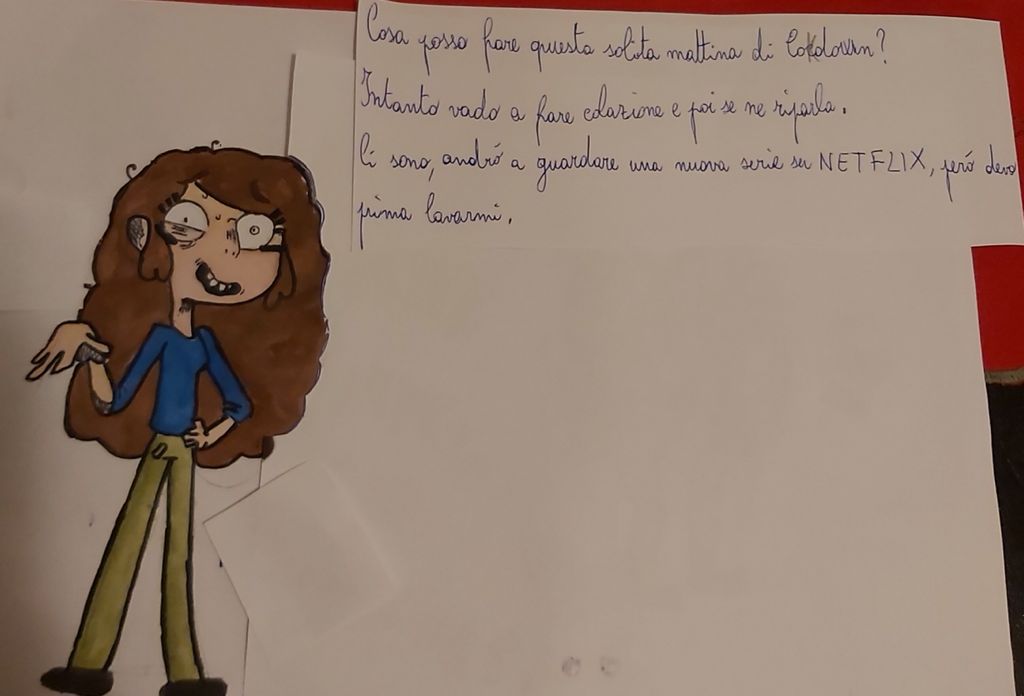 Cosa posso fare questa solita mattina di Lokdown?
Intanto vado a fare colazione e poi se ne riparla.
Ci sono, andró a guardare una nuova serie su NETFLIX, peró devo
prima lavarmi.